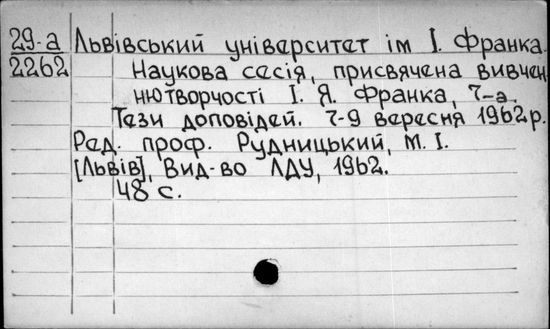 29-а Львівський університет ім І. Франка.
2262 Наукова сесія, присвячена вивчен
нютворчості І. Я. Франка, 7-а.
Тези доповідей. 7-9 вересня 1962 р.
Ред. проф. Рудницький, М. І.
[Львів], Вид-во ЛДУ, 1962.
48 с.